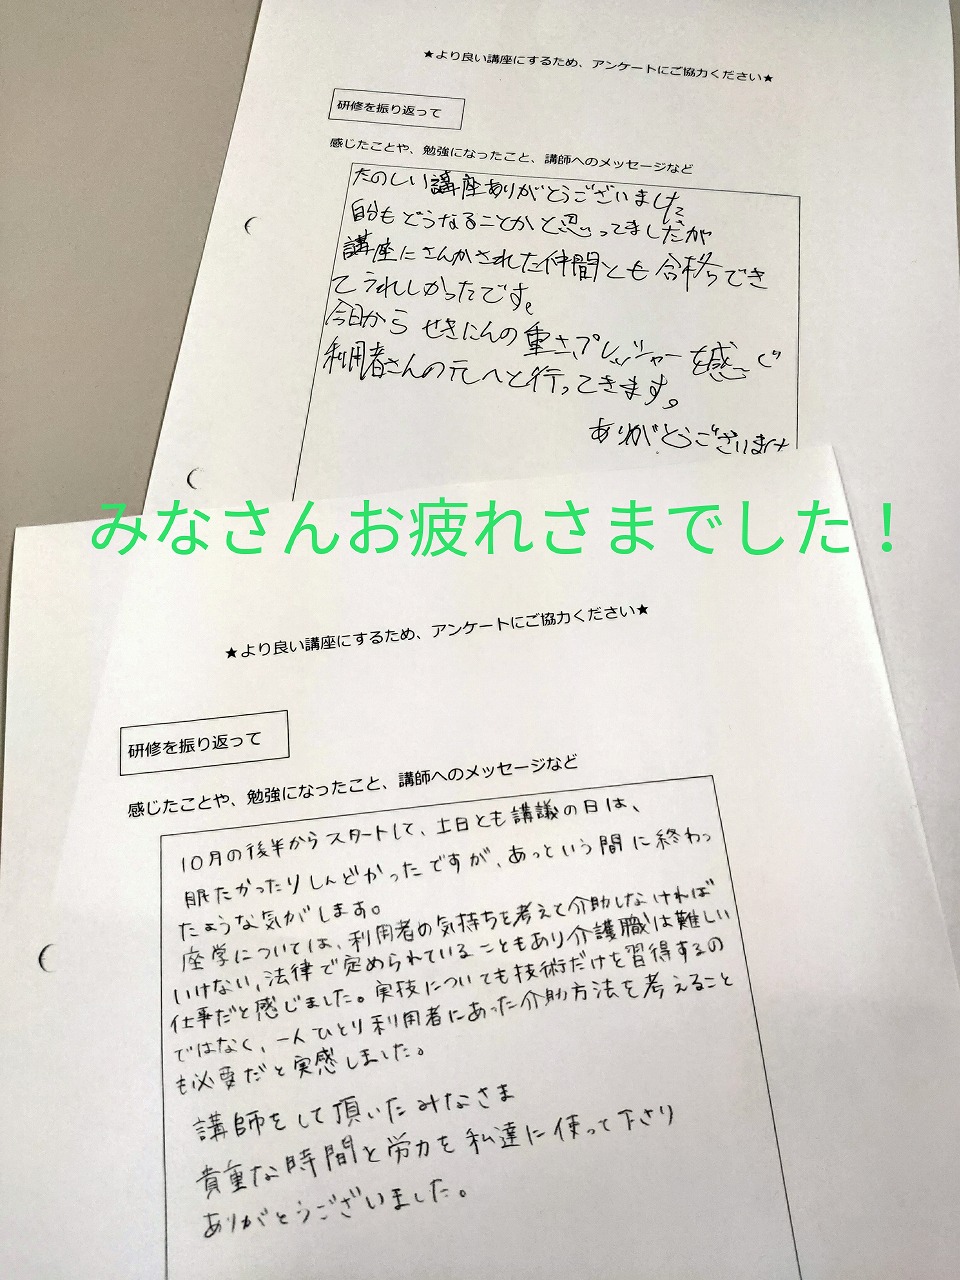 ★より良い講座にするため、アンケートにご協力ください★
研修を振り返って
感じたことや、勉強になったこと、講師へのメッセージなど
たのしい講座ありがとうございました
自分もどうなることかと思ってましたが
講座にさんかされた仲間とも合格でき
てうれしかったです。
今日から せきにんの重さ、プレッシャーを感じ
利用者さんの元へと行ってきます。
ありがとうございました
みなさんお疲れさまでした！
★より良い講座にするため、アンケートにご協力ください★
研修を振り返って
感じたことや、勉強になったこと、講師へのメッセージなど
10月の後半からスタートして、土日とも講議の日は、
眠たかったりしんどかったですが、あっという間に終わっ
たような気がします。
座学については、利用者の気持ちを考えて介助しなければ
いけない、法律で定められていることもあり介護職は難しい
仕事だと感じました。実技についても技術だけを習得するの
ではなく、一人ひとり利用者にあった介助方法を考えること
も必要だと実感しました。
講師をして頂いたみなさま
貴重な時間と労力を私達に使って下さり
ありがとうございました。